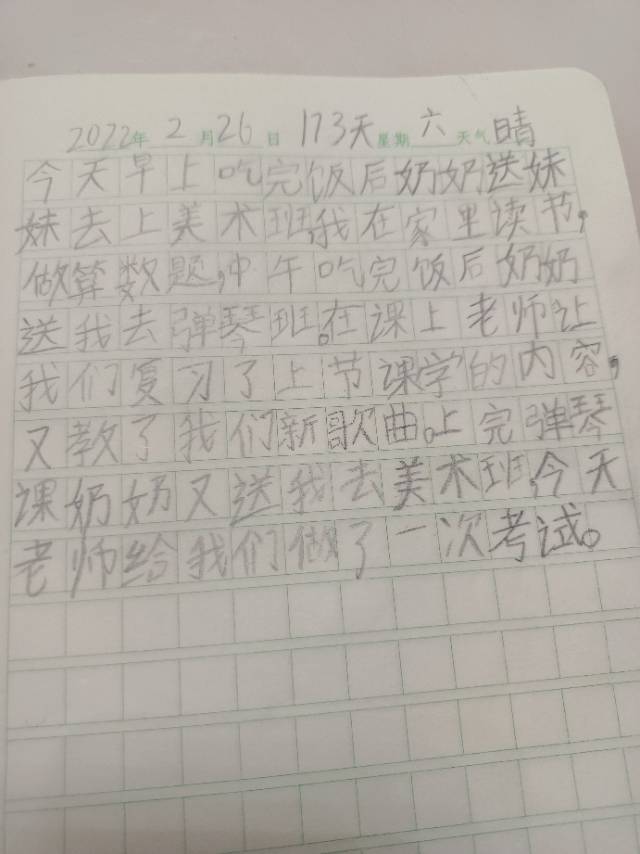 2022年 2月26日 173天 星期六 天气晴
今天早上吃完饭后奶奶送妹
妹去上美术班,我在家里读节,
做算数题,中午吃完饭后奶奶
送我去弹琴班。在课上老师让
我们复习了上节课学的内容,
又教了我们新歌曲。上完弹琴
课奶奶又送我去美术班,今天
老师给我们做了一次考试。